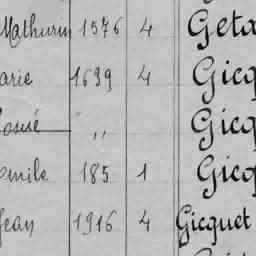 Mathurin 1576 4 Geta
arie 1639 4 Gicq
Josué " Gicq
Emile 185 1 Gicq
Jean 1916 4 Gicquet